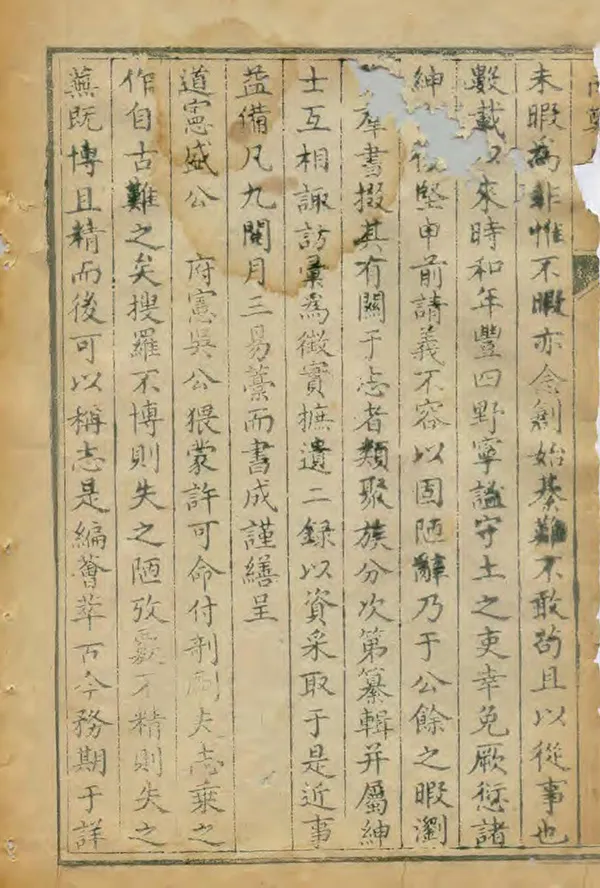 未暇為非惟不暇亦念創始綦難不敢苟且以從事也
數載以來時和年豐四野寧謐守土之吏幸免厥愆諸
紳復堅申前請義不容以固陋辭乃于公餘之暇瀏
羣書掇其有關于志者類聚族分次第纂輯并屬紳
士互相諏訪彙為徵實摭遺二録以資采取于是近事
益備凡九閱月三易藁而書成謹繕呈
道憲盛公 府憲吳公猥蒙許可命付剞劂夫志乘之
作自古難之矣搜羅不博則失之陋攷覈不精則失之
蕪既博且精而後可以稱志是編薈萃古今務期于詳